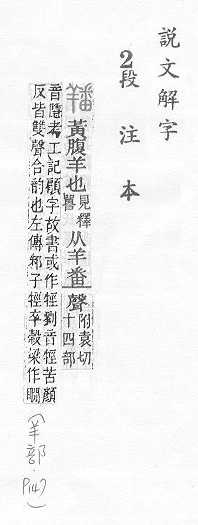 説文解字
2段注本
羳 黃腹羊也見釋嘼从羊番聲附袁切十四部
音隱考工記顅字故書或作牼劉音牼苦顏
反皆雙聲合韵也左傳邾子牼卒穀梁作瞷
(羊部,
P147)